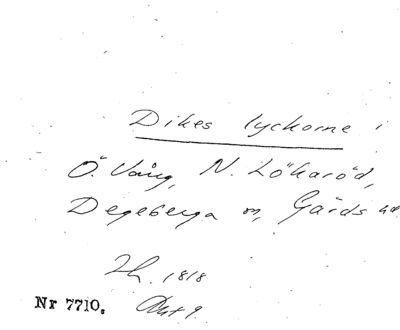 Dikes lyckorne i
Ö. Vång, N. Lökaröd,
Degeberga sn, Gärds hd
Lh. 1818
Nr 7710. Akt 9.